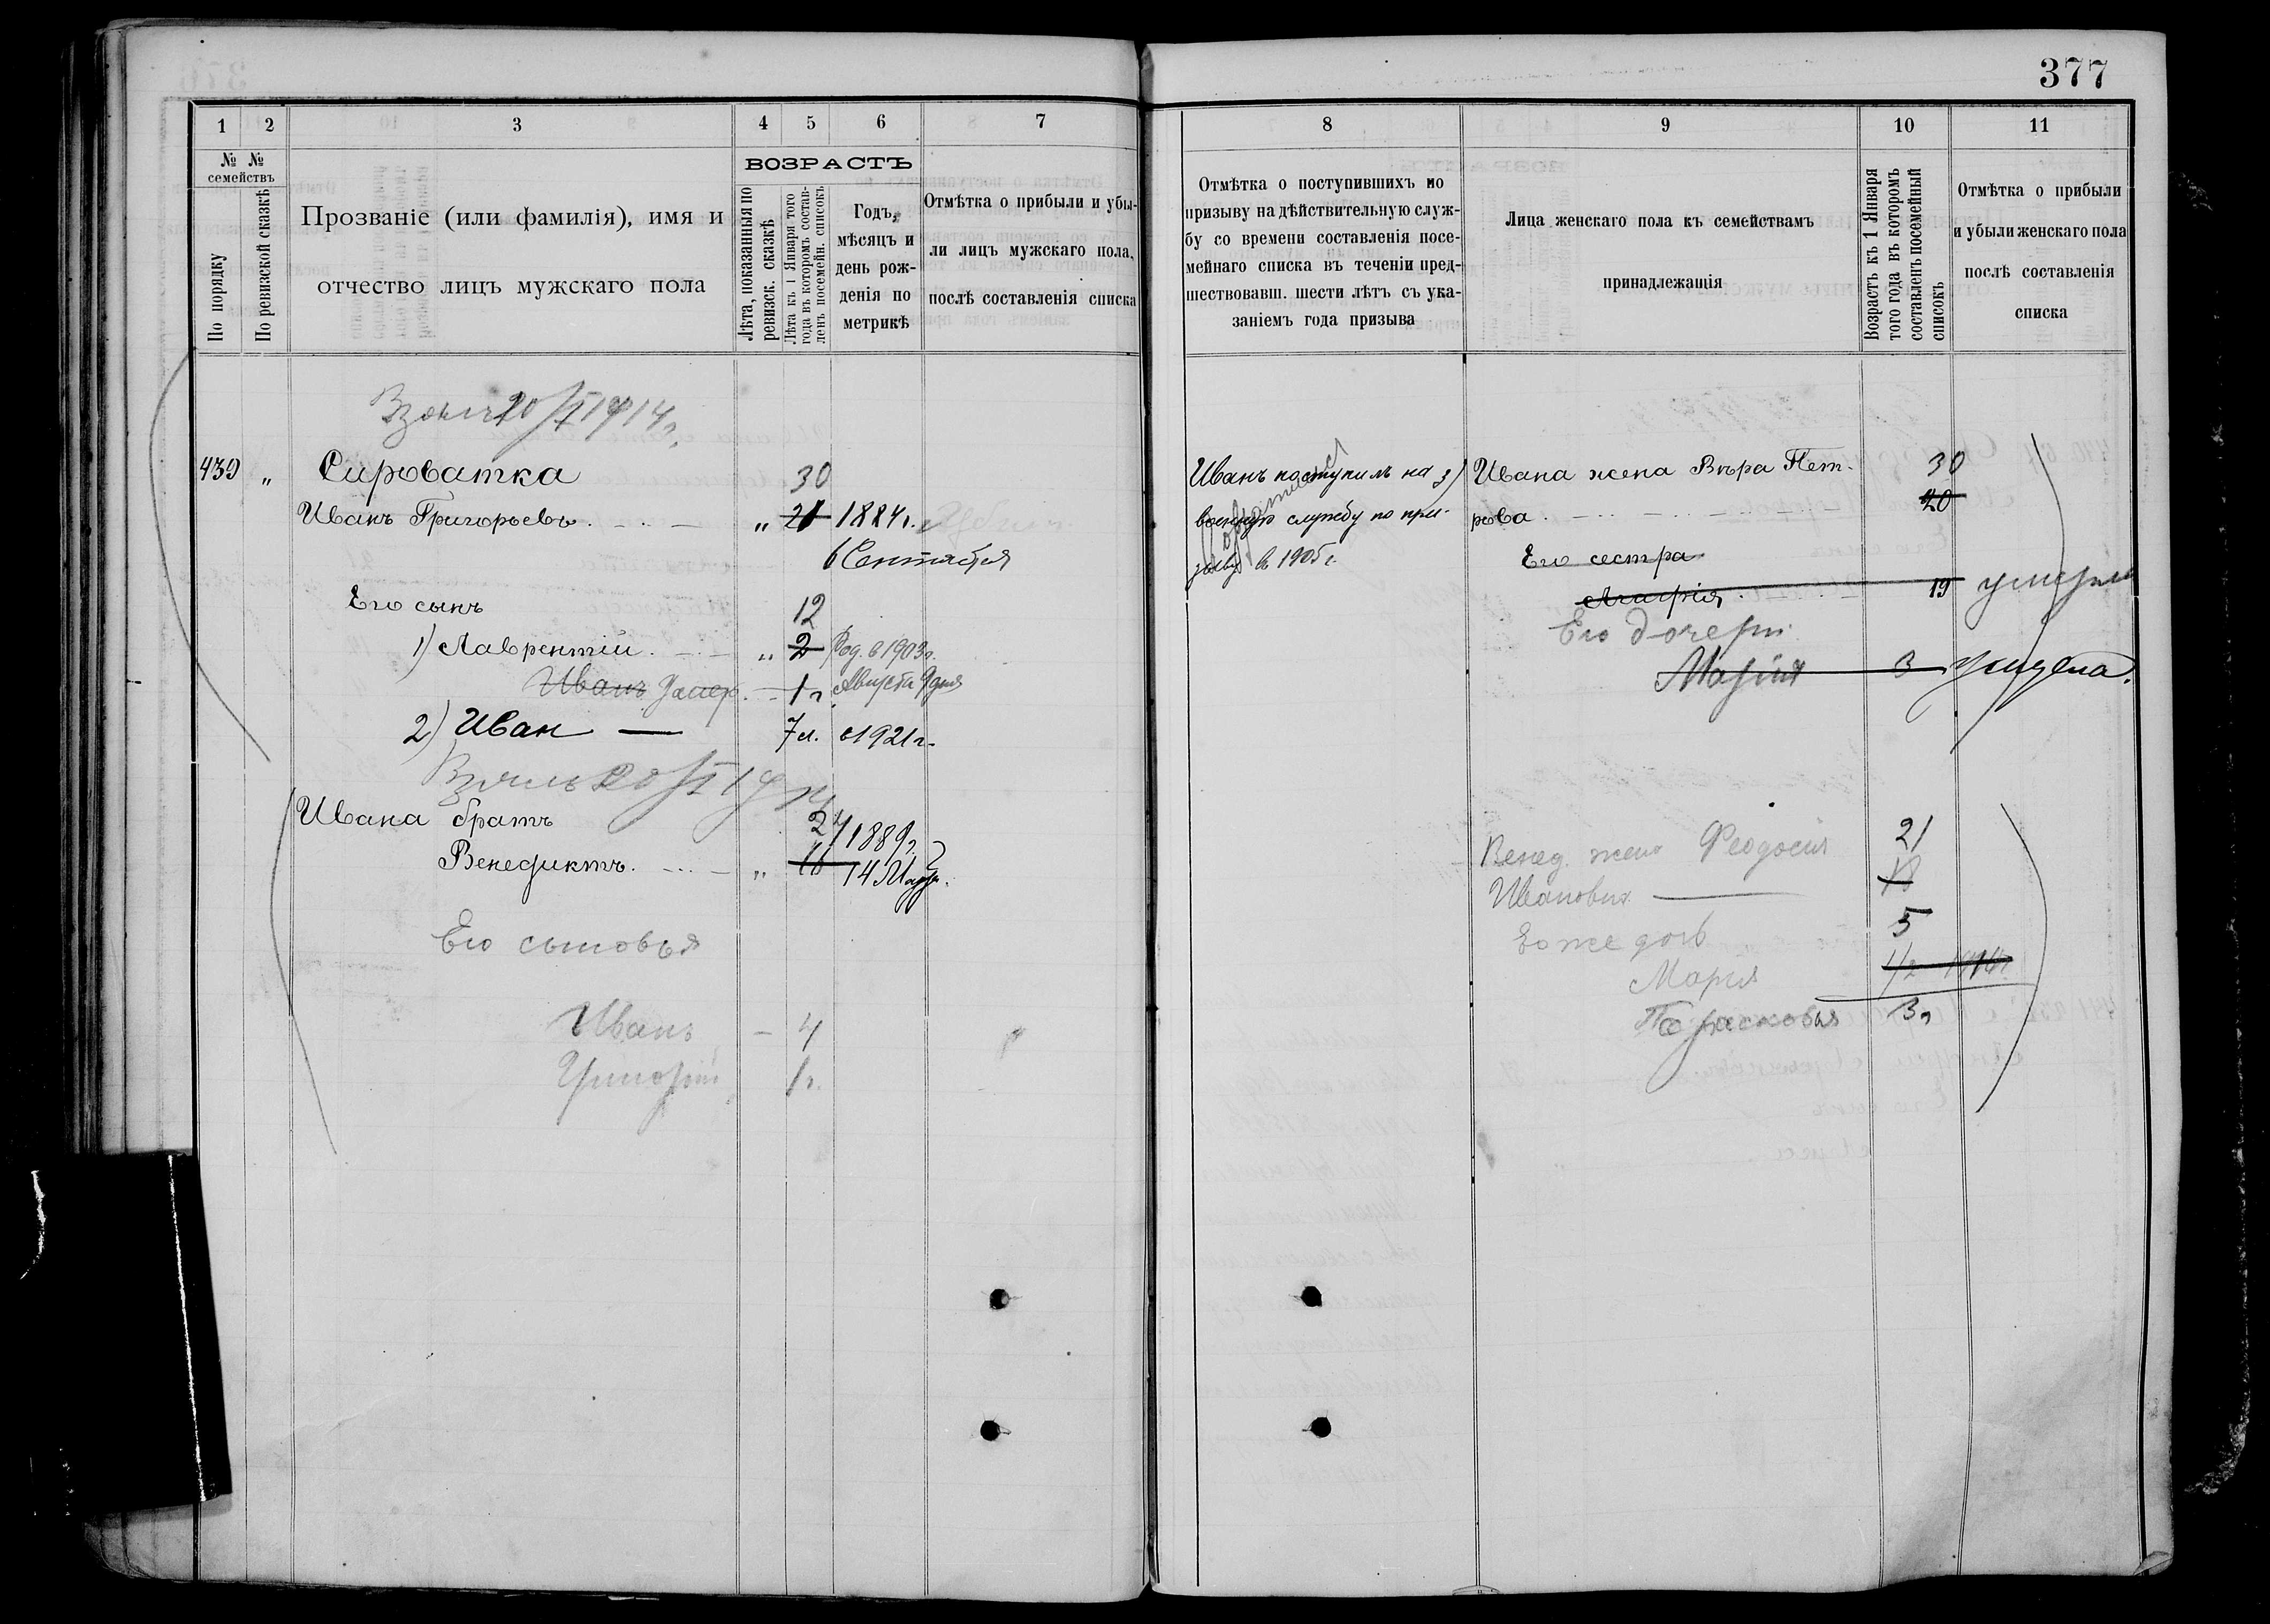 377
1 2 3 4 5 6 7
№ № семействъ
По порядку
По ревизской сказкѣ
Прозваніе (или фамилія), имя и
отчество лицъ мужскаго пола
ВОЗРАСТЪ
Лѣта, показанныя по
ревизск. сказкѣ
Лѣта къ 1 Января того
года въ которомъ состав-
ленъ посемейн. списокъ
Годъ,
мѣсяцъ и
день рож-
денія по
метрикѣ
Отмѣтка о прибыли и убы-
ли лицъ мужскаго пола,
послѣ составленія списка
20/II 1914г.
439 „ Сироватка 30
Иванъ Григорьевъ „ 21 1884г.
6 Сентября
Его сынъ 12
1) Лаврентій „ 2 Род. в 1903г.
Иванъ умер. 1г. Августа 9 дня
2) Иван — 7 л. в 1921г.
Ивана братъ 24 1889г.
Венедиктъ „ 16 14 Мар.
Его сыновья
Иванъ — 4
Григорій 1г.
8 9 10 11
Отмѣтка о поступившихъ по
призыву на дѣйствительную служ-
бу со времени составленія посе-
мейнаго списка въ теченіи пред-
шествовавш. шести лѣтъ съ ука-
заніемъ года призыва
Лица женскаго пола къ семействамъ
принадлежащія
Возрастъ къ 1 Января
того года въ которомъ
составленъ посемейный
списокъ
Отмѣтка о прибыли
и убыли женскаго пола
послѣ составленія
списка
Иванъ поступилъ на
военную службу по при-
зыву в 1905г.
Ивана жена Вѣра Пет- 30
рова 20
Его сестра
19 умерла
Его дочери
Марія 3
Венед. жена Феодосия 21
Ивановна — 18
Его же дочь 5
Мария 1/2 1914г.
Парасковья 3г.